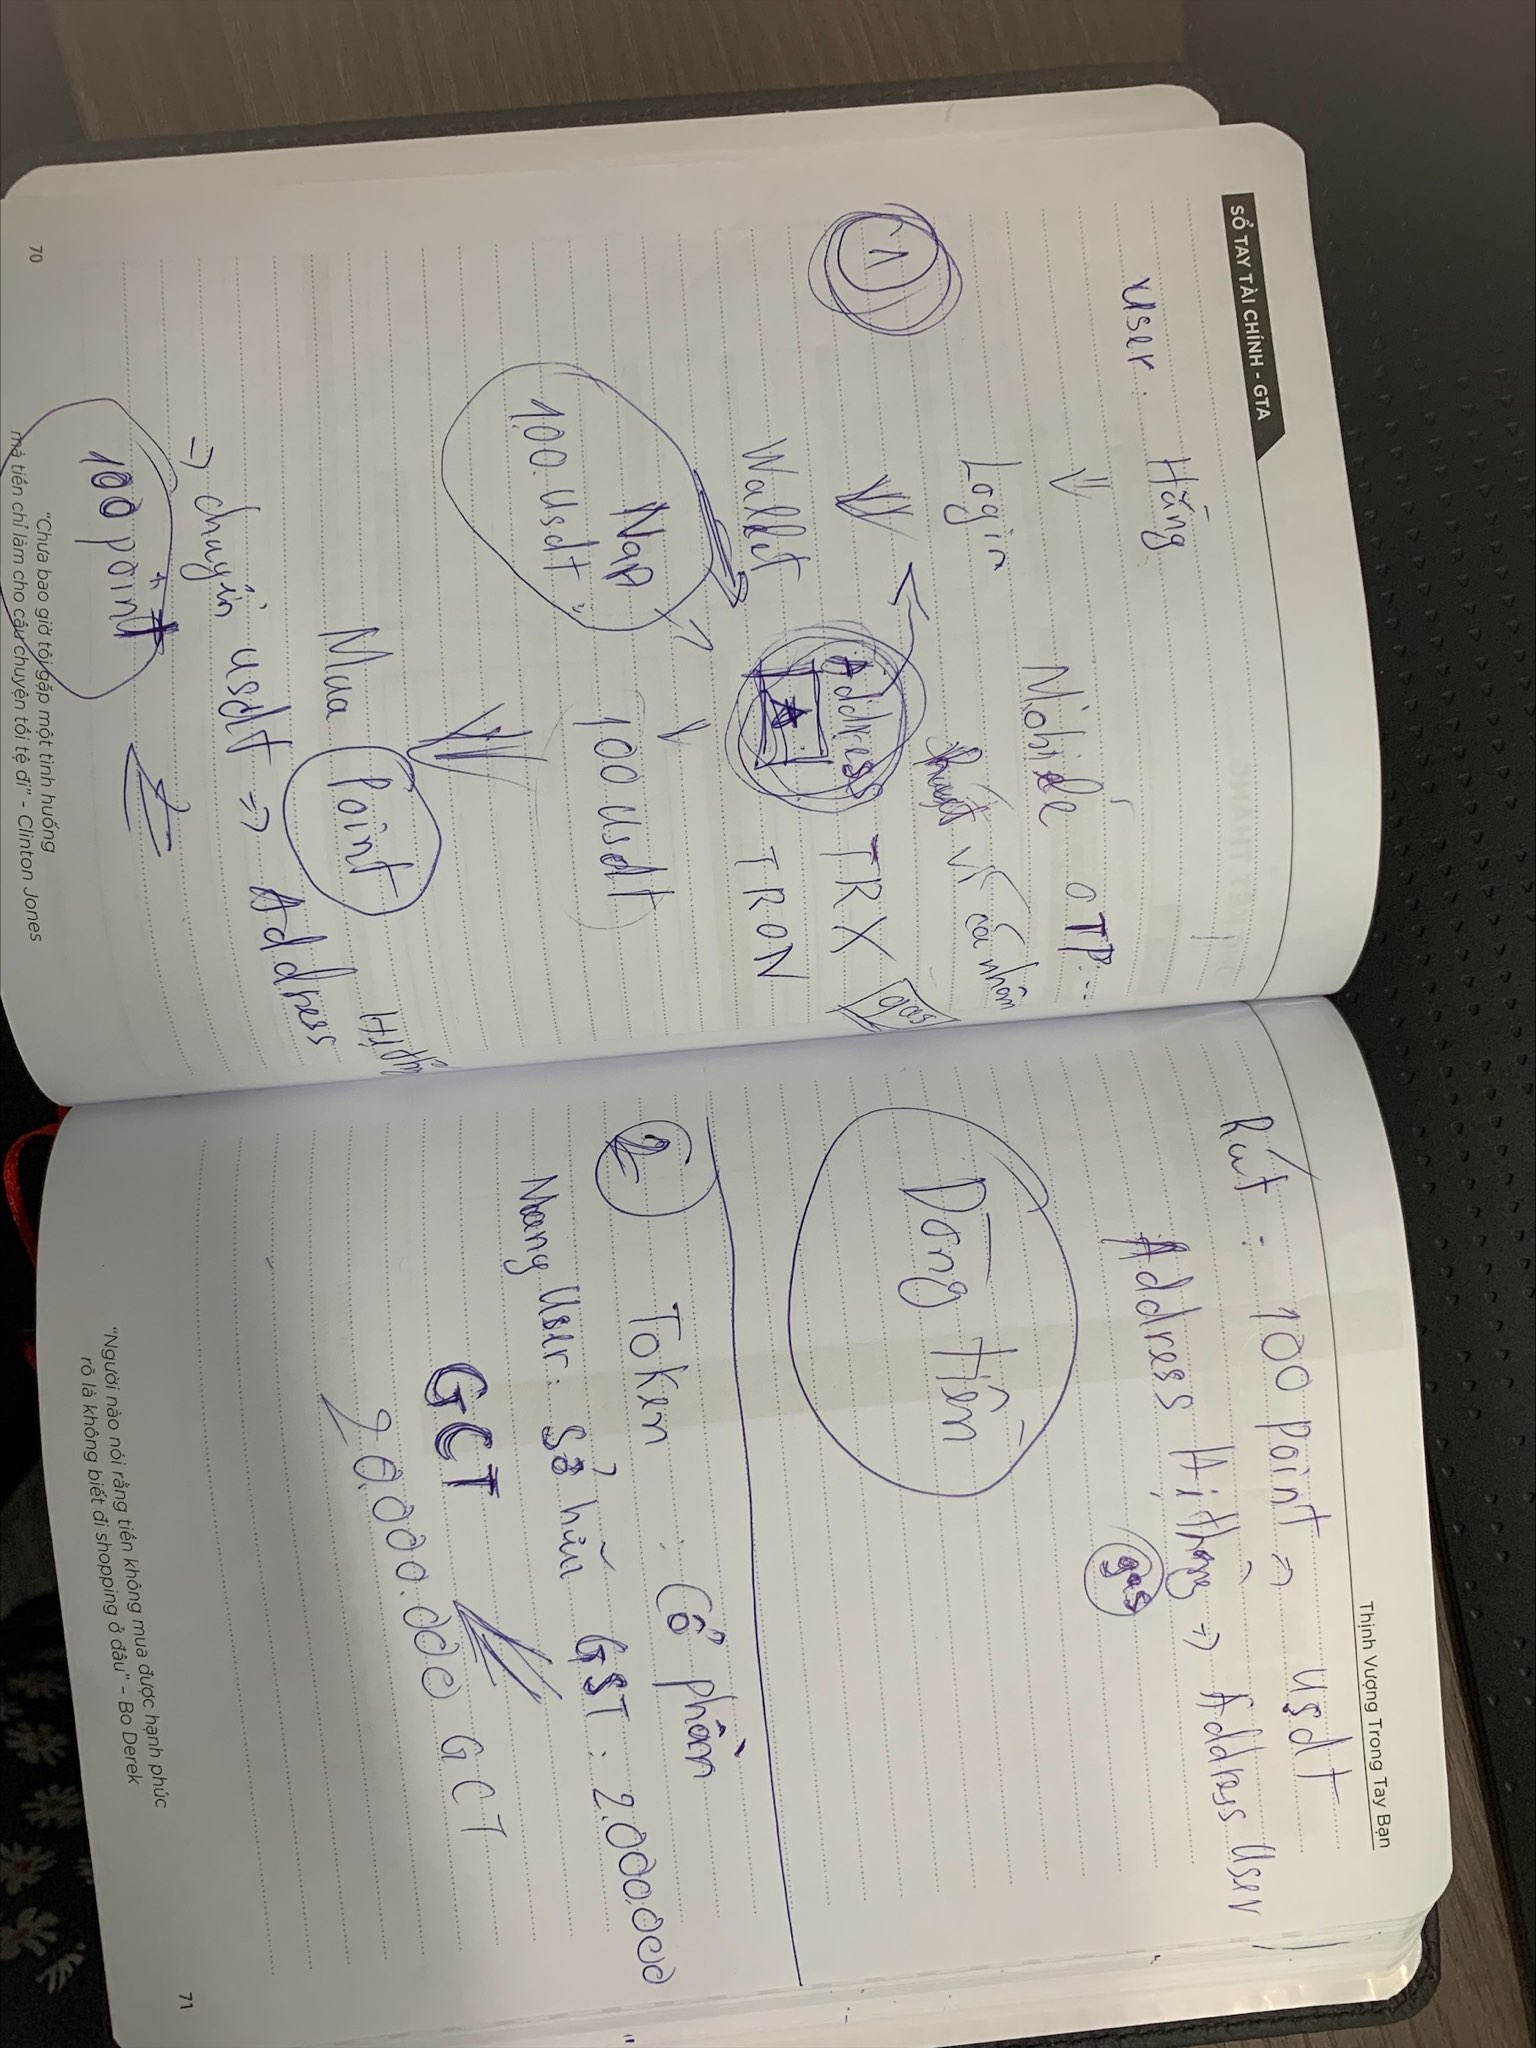 SỔ TAY TÀI CHÍNH - GTA
User: Hăng
Login
Mobile OTP...
Rút ví cá nhân
1
Address
A
TRX gas
TRON
Wallet
Nạp
100 usdt
100 usdt
Mua Point
⇒ chuyển usdt ⇒ Address
100 point
70
“Chưa bao giờ tôi gặp một tình huống
mà tiền chỉ làm cho câu chuyện tồi tệ đi” - Clinton Jones
Thịnh Vượng Trong Tay Bạn
Rút : 100 point ⇒ usdt
Address Hệ thống ⇒ Address User
gas
Dòng tiền
2 Token : Cổ phần
Mang User: Sở hữu GST: 2.000.000
GCT
20.000.000 GCT
71
“Người nào nói rằng tiền không mua được hạnh phúc
rõ là không biết đi shopping ở đâu” – Bo Derek